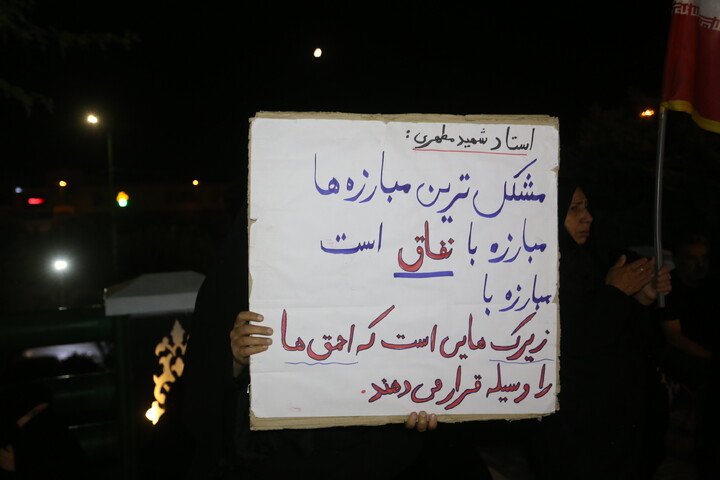 استاد شهید مطهری :
مشکل ترین مبارزه ها
مبارزه با نفاق است
مبارزه با
زیرک هایی است که احمق ها
را وسیله قرار می دهند.